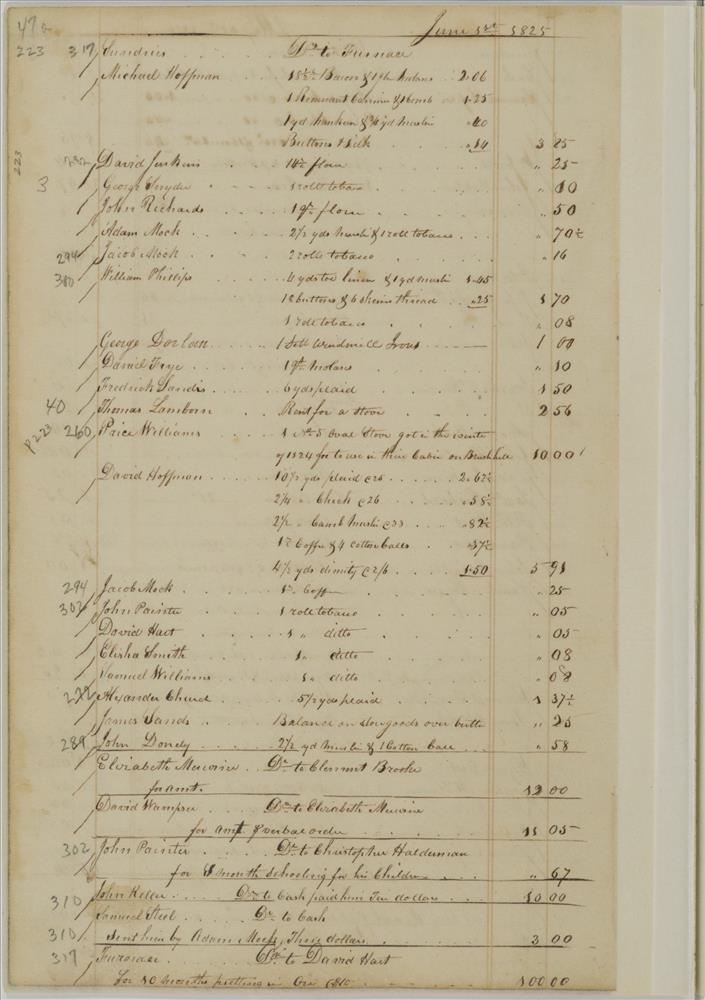 47a
June 1st 1825
223 317 Sundries Dr to Furnace
Michael Hoffman 18 lbs Bacon & 1 qt Molas 2.06
1 Remnant & 1 Comb 1.25
1 yd Nankeen & yd muslin " 40
Buttons & Silk " 14 3 25
223
David Jenkins 14 lb flour " 25
3 George Snyder 1 roll tobaco " 10
John Richards 1 qr flour " 50
Adam Mock 2 1/2 yds musli & 1 roll tobacco " 70 1/2
294 Jacob Mock 2 rolls tobacco " 16
310 William Phillips 4 yds tow linen & 1 yd muslin 1.45
18 buttons & 6 skeins thread " 25 1 70
1 roll tobacco " 08
George Dorlan 1 Sett Windmill Irons 1 00
Daniel Frye 1 qt molass " 10
Fredrick Sands 6 yds plaid 1 50
40 Thomas Lamborn Rent for a stove 2 56
p 223 260 Price Williams 1 No 5 Oval Stove got in the winter
of 1824 for to use in their Cabin on 10 00
David Hoffman 10 1/2 yds plaid @ 25 2.62 1/2
2 1/4 " Check @ 26 " 58 1/2
2 1/2 " Camb muslin @ 33 " 82 1/2
1 lb Coffee & 4 cotton balls " 37 1/2
4 1/2 yds dimity @ 2/6 1.50 5 91
294 Jacob Mock 1 lb Coffee " 25
302 John Painter 1 roll tobacco " 05
David Hart 1 " ditto " 05
Elisha Smith 1 " ditto " 08
Samuel Williams 1 " ditto " 08
222 Alexander Church 5 1/2 yds plaid 1 37 1/2
James Sands Balance on Storegoods over butter " 25
289 John Dondy 2 1/2 yd muslin & 1 Cotton Ball " 58
Elizabeth Mewine Dr to Clement Brooke
for amt. 12 00
David Wampser Dr to Elizabeth Mewine
for amt of verbal order 11 05
302 John Painter Dr to Christopher Halderman
for 1 month schooling for his Children " 67
310 John Keller Dr to Cash paid him Ten dollars 10 00
Samuel Steel Dr to Cash
310 Sent him by Adam Mock, Three dollars 3 00
317 Furnace Dr to David Hart
for 10 months putting in Ore @ $10 100 00